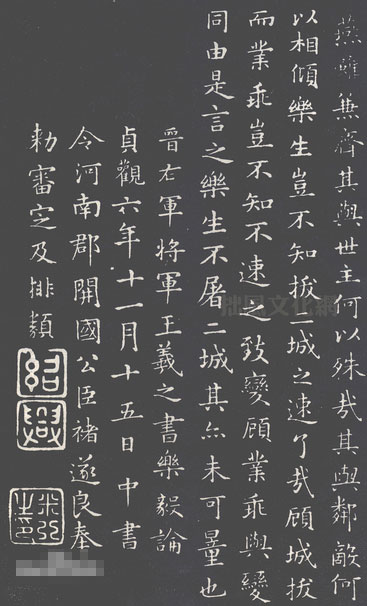 燕雖兼齊其與世主何以殊哉其與鄰敵何
以相傾樂生豈不知拔二城之速了哉顧城拔
而業乖豈不知不速之致變顧業乖與變
同由是言之樂生不屠二城其亦未可量也
晉右軍將軍王羲之書樂毅論
貞觀六年十一月十五日中書
令河南郡開國公臣褚遂良奉
勑審定及排類
紹興